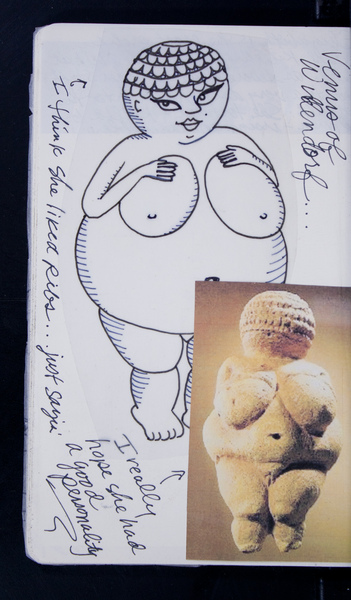 Venus of
Willendorf...
I think she liked ribs... just sayin'
I really
hope she had
a good
personality